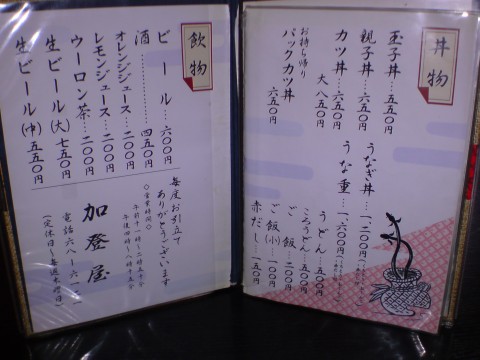 丼物
玉子丼…五五〇円
親子丼…六五〇円
カツ丼…六五〇円
大 八五〇円
お持ち帰り
パックカツ丼
六五〇円
うなぎ丼…一、二〇〇円
うな重…一、六〇〇円
うどん…五五〇円
ころうどん…五五〇円
ご飯…二〇〇円
ご飯(小)…一〇〇円
赤だし…一五〇円
飲物
ビール…六〇〇円
酒…四五〇円
オレンジジュース…二〇〇円
レモンジュース…二〇〇円
ウーロン茶…二〇〇円
生ビール(大)七五〇円
生ビール(中)五五〇円
毎度お引立て
ありがとうございます
◇営業時間◇
午前十一時〜二時三十分
午後四時〜八時十五分
加登屋
電話六八ー六一
(定休日〜毎週木曜日)